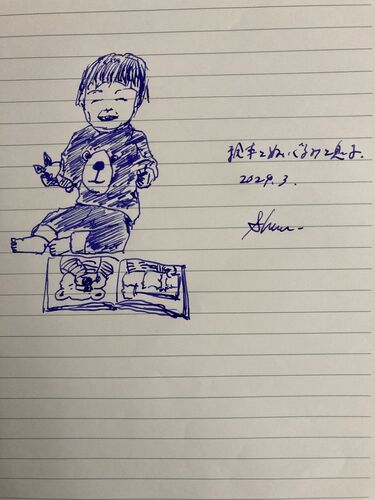 絵本とぬいぐるみと息子.
2024.3.